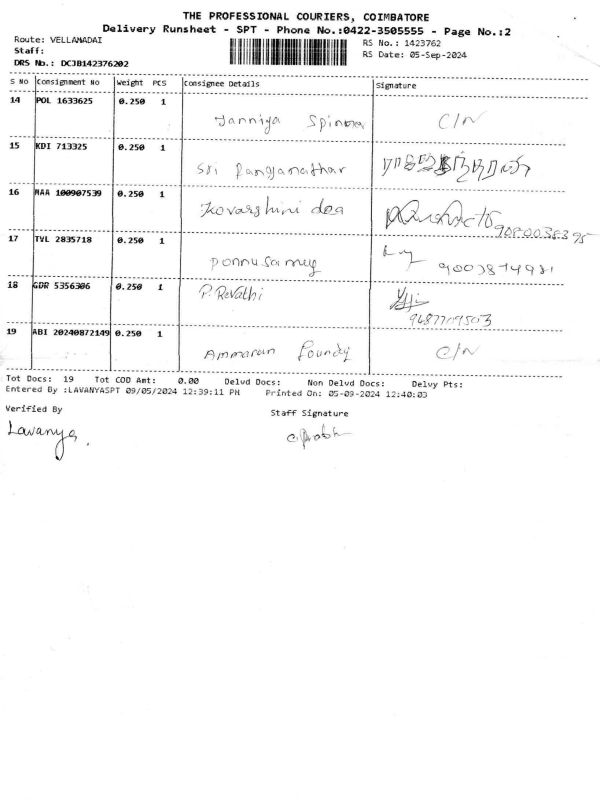 THE PROFESSIONAL COURIERS, COIMBATORE
Delivery Runsheet - SPT - Phone No.:0422-3505555 - Page No.:2
Route: VELLAMADAI
RS No.: 1423762
Staff:
RS Date: 05-Sep-2024
DRS No.: DCJB142376202
S No Consignment No Weight PCS Consignee Details Signature
14 POL 1633625 0.250 1
Janniya Spinna C/N
15 KDI 713325 0.250 1
Sri Ranganathar
16 MAA 100907539 0.250 1
Kovarshini dea
9080038395
17 TVL 2835718 0.250 1
ponnusamy
18 GDR 5356306 0.250 1
P. Revathi
19 ABI 20240872149 0.250 1
Ammaran Foundy C/N
Tot Docs: 19 Tot COD Amt: 0.00 Delvd Docs: Non Delvd Docs: Delvy Pts:
Entered By :LAVANYASPT 09/05/2024 12:39:11 PM Printed On: 05-09-2024 12:40:03
Verified By
Staff Signature
Lavanya.